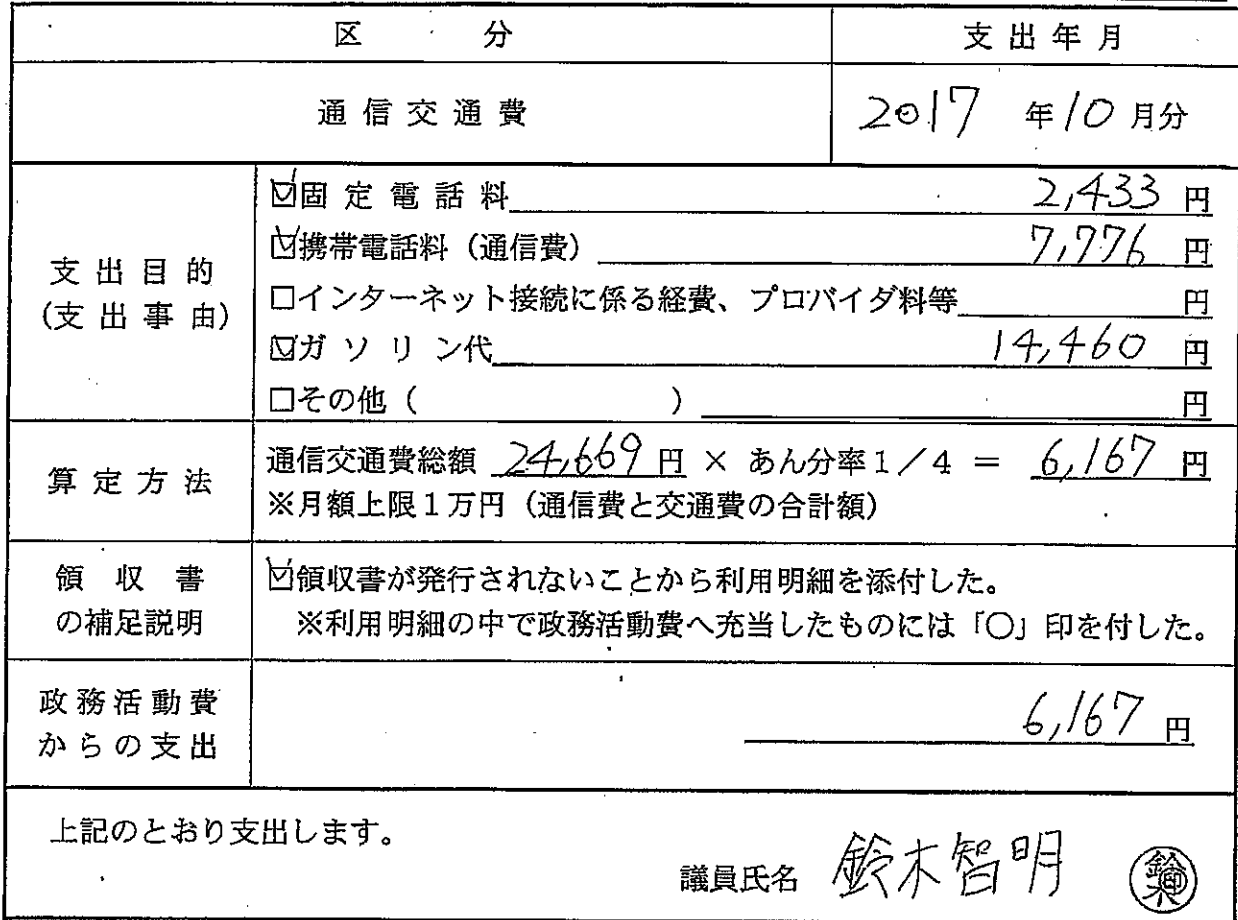 区 分 支出年月
通信交通費 2017 年10月分
☑固定電話料 2,433 円
☑携帯電話料（通信費） 7,776 円
支出目的
(支出事由)
□インターネット接続に係る経費、プロバイダ料等 円
☑ガソリン代 14,460 円
□その他（ ） 円
算定方法
通信交通費総額 24,669 円 × あん分率1／4 ＝ 6,167 円
※月額上限1万円（通信費と交通費の合計額）
領収書
の補足説明
☑領収書が発行されないことから利用明細を添付した。
※利用明細の中で政務活動費へ充当したものには「〇」印を付した。
政務活動費
からの支出
6,167 円
上記のとおり支出します。
議員氏名 鈴木智明 鈴木